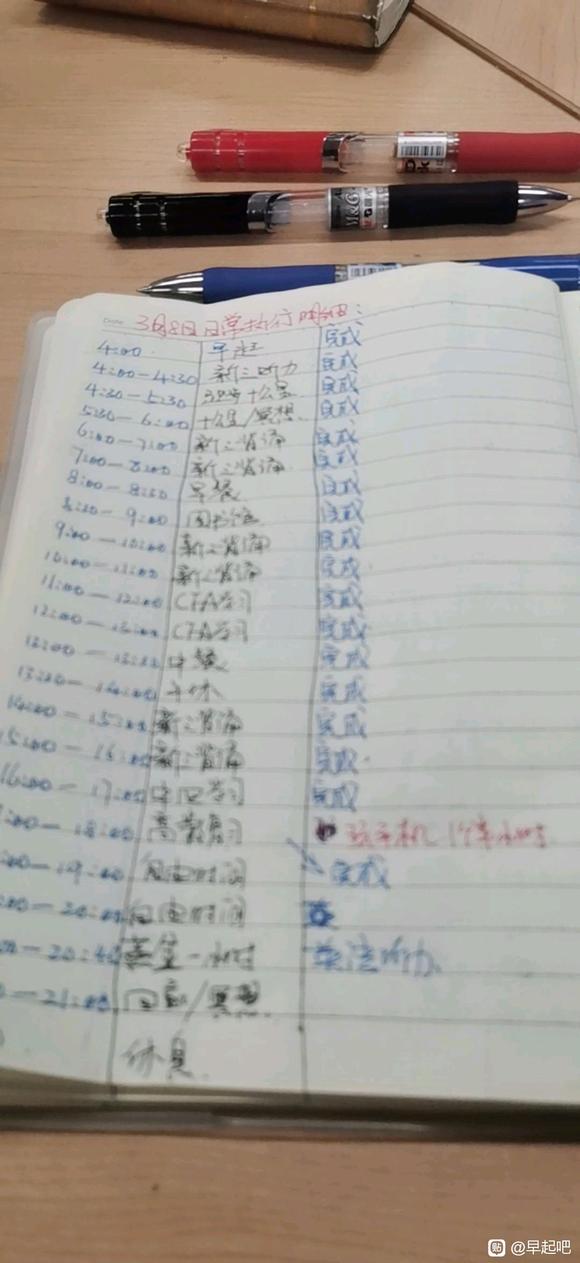 Date
3月8日日常执行明细:
4:00 早起 完成
4:00—4:30 新三听力 完成
4:30—5:30 十公里 完成
5:30—6:00 十公里/冥想 完成
6:00—7:00 新三背诵 完成
7:00—8:00 新三背诵 完成
8:00—8:30 早餐 完成
8:30—9:00 图书馆 完成
9:00—10:00 新三背诵 完成
10:00—11:00 新三背诵 完成
11:00—12:00 CFA学习 完成
12:00— CFA学习 完成
中餐 完成
13:30—14:00 午休 完成
14:00—15:00 新三背诵 完成
15:00—16:00 新三背诵 完成
16:00—17:00 学习 完成
:00—18:00 高数复习 玩手机 1个半小时
:00—19:00 自由时间 完成
:00—20:00 自由时间
—20:40 一小时 英语听力
—21:00 回家/冥想
休息
M&G
@早起吧